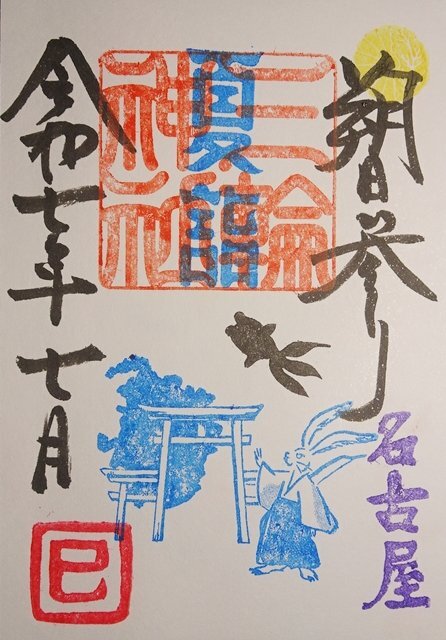 朔日参り
名古屋
三輪
神社
夏詣
令和七年 七月
巳